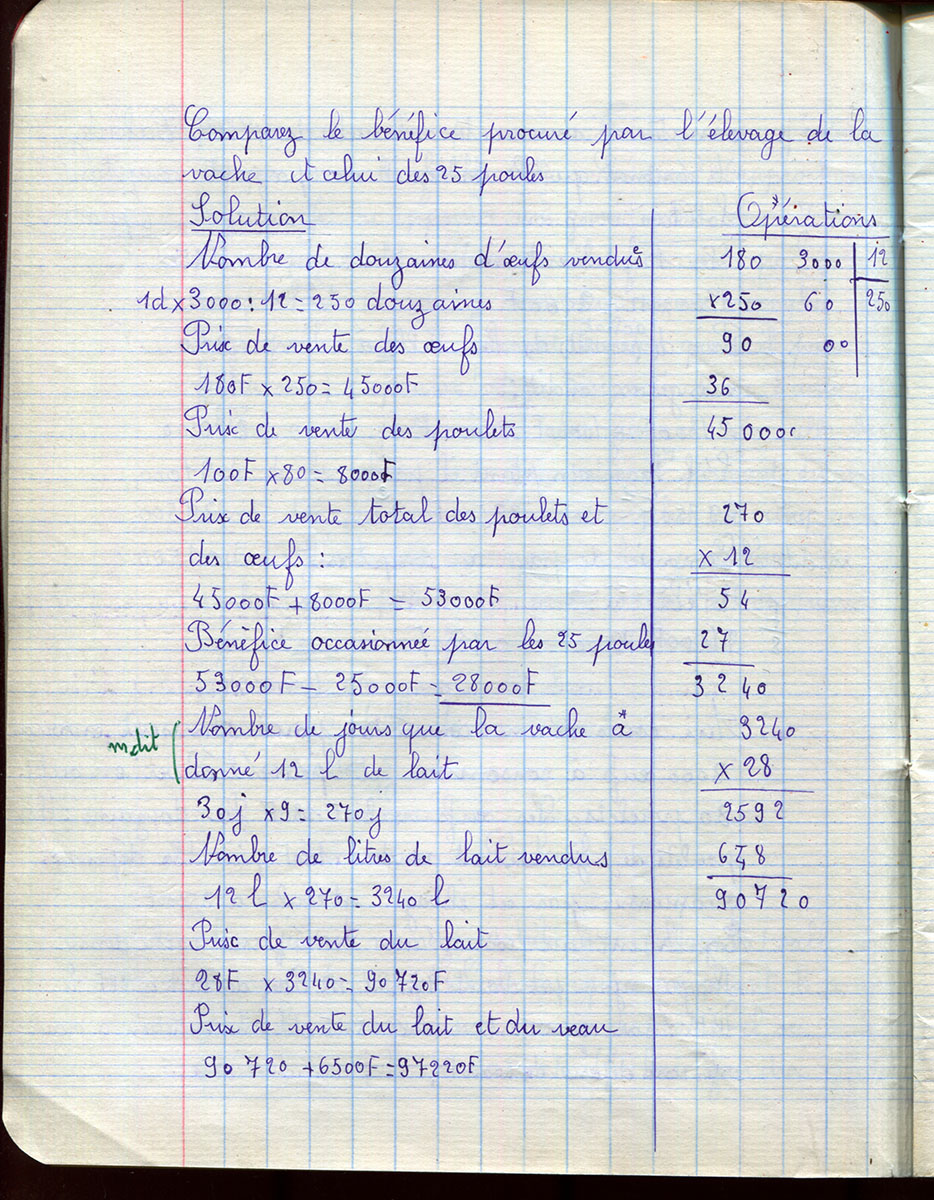 Comparez le bénéfice procuré par l'élevage de la
vache et celui des 25 poules
Solution
Nombre de douzaines d'œufs vendus
1d x 3000 : 12 = 250 douzaines
Prix de vente des œufs
180F x 250 = 45000F
Prix de vente des poulets
100F x 80 = 8000F
Prix de vente total des poulets et
des œufs :
45000F + 8000F = 53000F
Bénèfice occasionnée par les 25 poules
53000F - 25000F = 28000F
Nombre de jours que la vache à
donné 12 l de lait
30j x 9 = 270j
Nombre de litres de lait vendus
12 l x 270 = 3240 l
Prix de vente du lait
28F x 3240 = 90720F
Prix de vente du lait et du veau
90 720 + 6500F = 97220F
Opérations
180 3000 12
x 250 60 250
90 00
36
45 000
270
x 12
54
27
3240
3240
x 28
2592
648
90720